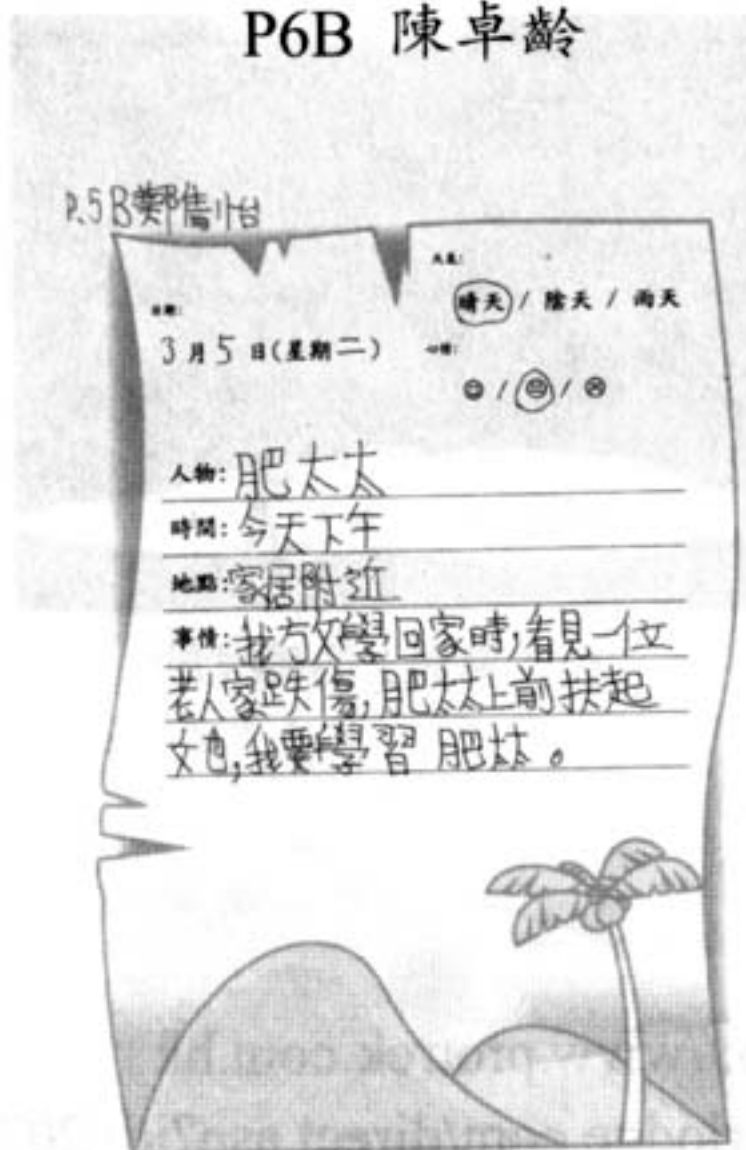 P6B 陳卓齡
P.5B鄭雋
天氣:
晴天 / 陰天 / 雨天
日期:
3 月 5 日(星期二)
心情:
☺ / 😐 / ☹
人物: 肥太太
時間: 今天下午
地點: 家居附近
事情: 我放學回家時,看見一位
老人家跌傷,肥太太上前扶起
她,我要學習 肥太太。